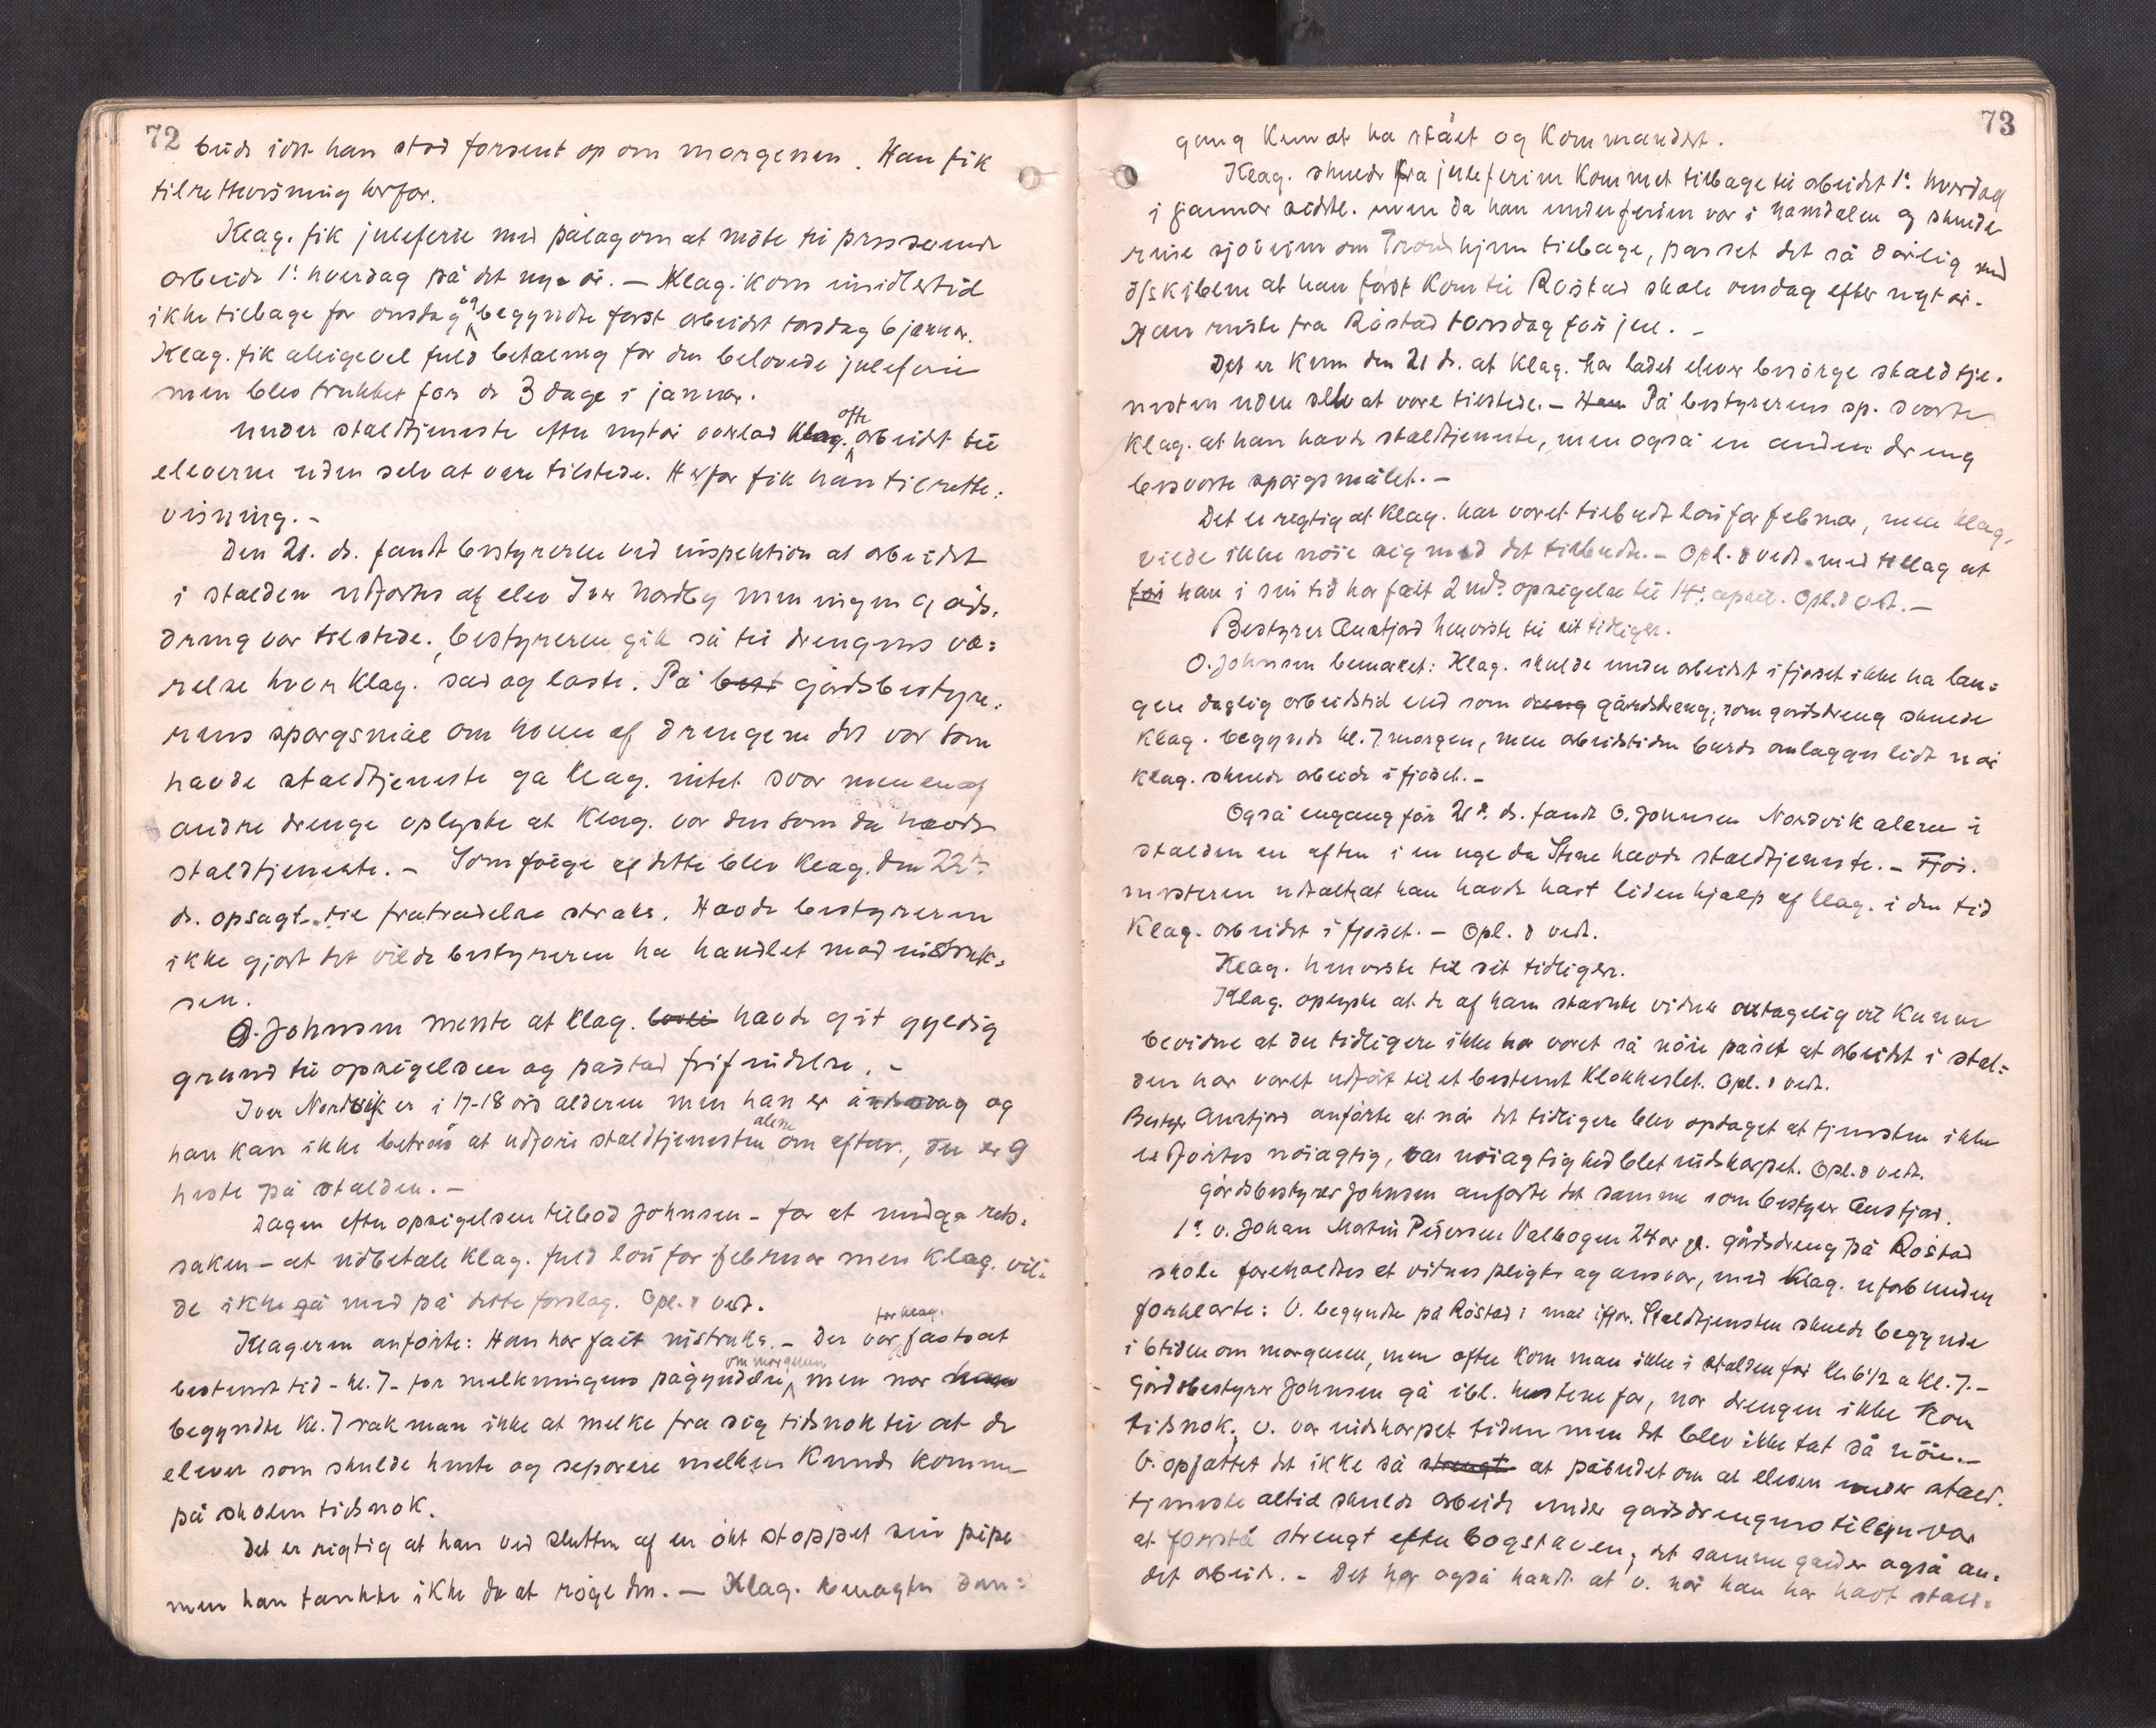 72
beide idet han stod forsent op om morgenen. Han fik
tilrettevisning herfor.
Klag. fik juleferie med pålæg om at møte til præsterende
arbeide 1ste hverdag på det nye år. — Klag. kom imidlertid
ikke tilbage før onsdag og begyndte først arbeidet torsdag 6 januar.
Klag. fik alligevel fuld betaling for den belovede juleferie
men blev trukket for de 3 dage i januar.
Under staldtjeneste efter nytår overlod klag. ofte arbeidet til
eleverne uden selv at være tilstede. Herfor fik han tilrette-
visning. -
Den 21. ds. fandt bestyreren ved inspektion at arbeidet
i stalden utførtes af elev Iver Nordby men ingen gårds-
dreng var tilstede. Bestyreren gik så til drengens væ=
relse hvor klag. sad og læste. På best gårdsbestyre-
rens spørgsmål om hvem af drengene det var som
havde staldtjeneste ga klag. intet svar men en af
andre drenge oplyste at klag. var den som da havde
staldtjeneste. - Som følge af dette blev klag. den 22de
ds. opsagt til fratrædelse straks. Havde bestyreren
ikke gjort det vilde bestyreren ha handlet mod instruk-
sen.
O. Johnsen mente at klag. havde git gyldig
grund til opsigelsen og påstod frifindelse. -
Iver Nordvik er i 17-18 års alderen men han er åndssvag og
han kan ikke betroes at udføre staldtjenesten alene om aften., der er 9
heste på stalden. -
Dagen efter opsigelsen tilbød Johnsen - for at undgå rets-
saken - at udbetale klag. fuld løn for februar men klag. vil-
de ikke gå med på dette forslag. Opl. & vedt.
Klageren anførte: Han har fåt instruks. - Der var for klag. fastsat
bestemt tid - kl. 7 - for melkningens påbegyndelse om morgenen, men når han
begyndte kl. 7 rak man ikke at melke fra sig tidsnok til at de
elever som skulde hente og separere melken kunde komme
på skolen tidsnok.
Det er rigtig at han ved slutten af en økt stoppet sin pipe
men han tænkte ikke da at røge den. — Klag. benægter den=
73
gang kun at ha stået og kommandert.
Klag. skulde fra juleferien kommet tilbage til arbeidet 1ste hverdag
i januar sidstl. men da han under ferien var i Namdalen og skulde
reise sjøveien om Trondhjem tilbage, passet det så dårlig med
d/skibene at han først kom til Røstad skole onsdag efter nytår.
Han reiste fra Røstad torsdag før jul. -
Det er kun den 21 ds. at klag. har ladet elever besørge staldtje-
nesten uden selv at være tilstede. - Han På bestyrerens sp. svarte
klag. at han havde staldtjeneste, men også en anden dreng
besvarte spørgsmålet. -
Det er rigtig at klag. har været tilbudt løn for februar, men klag.
vilde ikke nøie sig med det tilbudte. - Opl. & vedt. med tillæg at
før han i sin tid har fåt 2 mds opsigelse til 14. april. Opl. & vedt. -
Bestyrer Austfjord henviste til sit tidligere.
O. Johnsen bemærket: Klag. skulde under arbeidet i fjøset ikke ha læn=
gere daglig arbeidstid end som dreng gårdsdreng; som gårdsdreng skulde
klag. begynde kl. 7 morgen, men arbeidstiden burde omlægges lidt når
klag. skulde arbeide i fjøset. -
Også engang før 21de ds. fandt O. Johnsen Nordvik alene i
stalden en aften i en uge da Stene havde staldtjeneste. - Fjøs-
mesteren udtalte at han havde hast liden hjælp af klag. i den tid
klag. arbeidet i fjøset. - Opl. & vedt.
Klag. henviste til sit tidligere.
Klag. oplyste at de af ham stævnte vidner antagelig vil kunne
bevidne at der tidligere ikke har været så nøie påset at arbeidet i stal=
den har været udført til et bestemt klokkeslet. Opl. & vedt.
Bestyr. Austfjord anførte at når det tidligere blev opdaget at tjenesten ikke
udførtes nøiagtig, var nøiagtighed blet indskarpet. Opl. & vedt.
Gårdsbestyrer Johnsen anførte det samme som bestyrer Austfjord.
1ste v. Johan Martin Petersen Valbogen 24 år gl. gårdsdreng på Røstad
skole foreholdtes et vidnes pligter og ansvar, med klag. uforbunden
forklarte: V. begyndte på Røstad i mai ifjor. Staldtjenesten skulde begynde
i 6 tiden om morgenen, men ofte kom man ikke i stalden før kl. 6 1/2 a kl. 7. -
Gårdsbestyrer Johnsen gå ibl. hestene for, når drengen ikke kom
tidsnok; V. var indskarpet tiden men det blev ikke tat så nøie. -
V. opfattet det ikke så strengt at påbudet om at eleven under stald-
tjeneste altid skulde arbeide under gårdsdrengens tilsyn var
at forstå strengt efter bogstaven; det samme gælder også an=
det arbeide. - Det har også hændt at v. når han har havt stald=